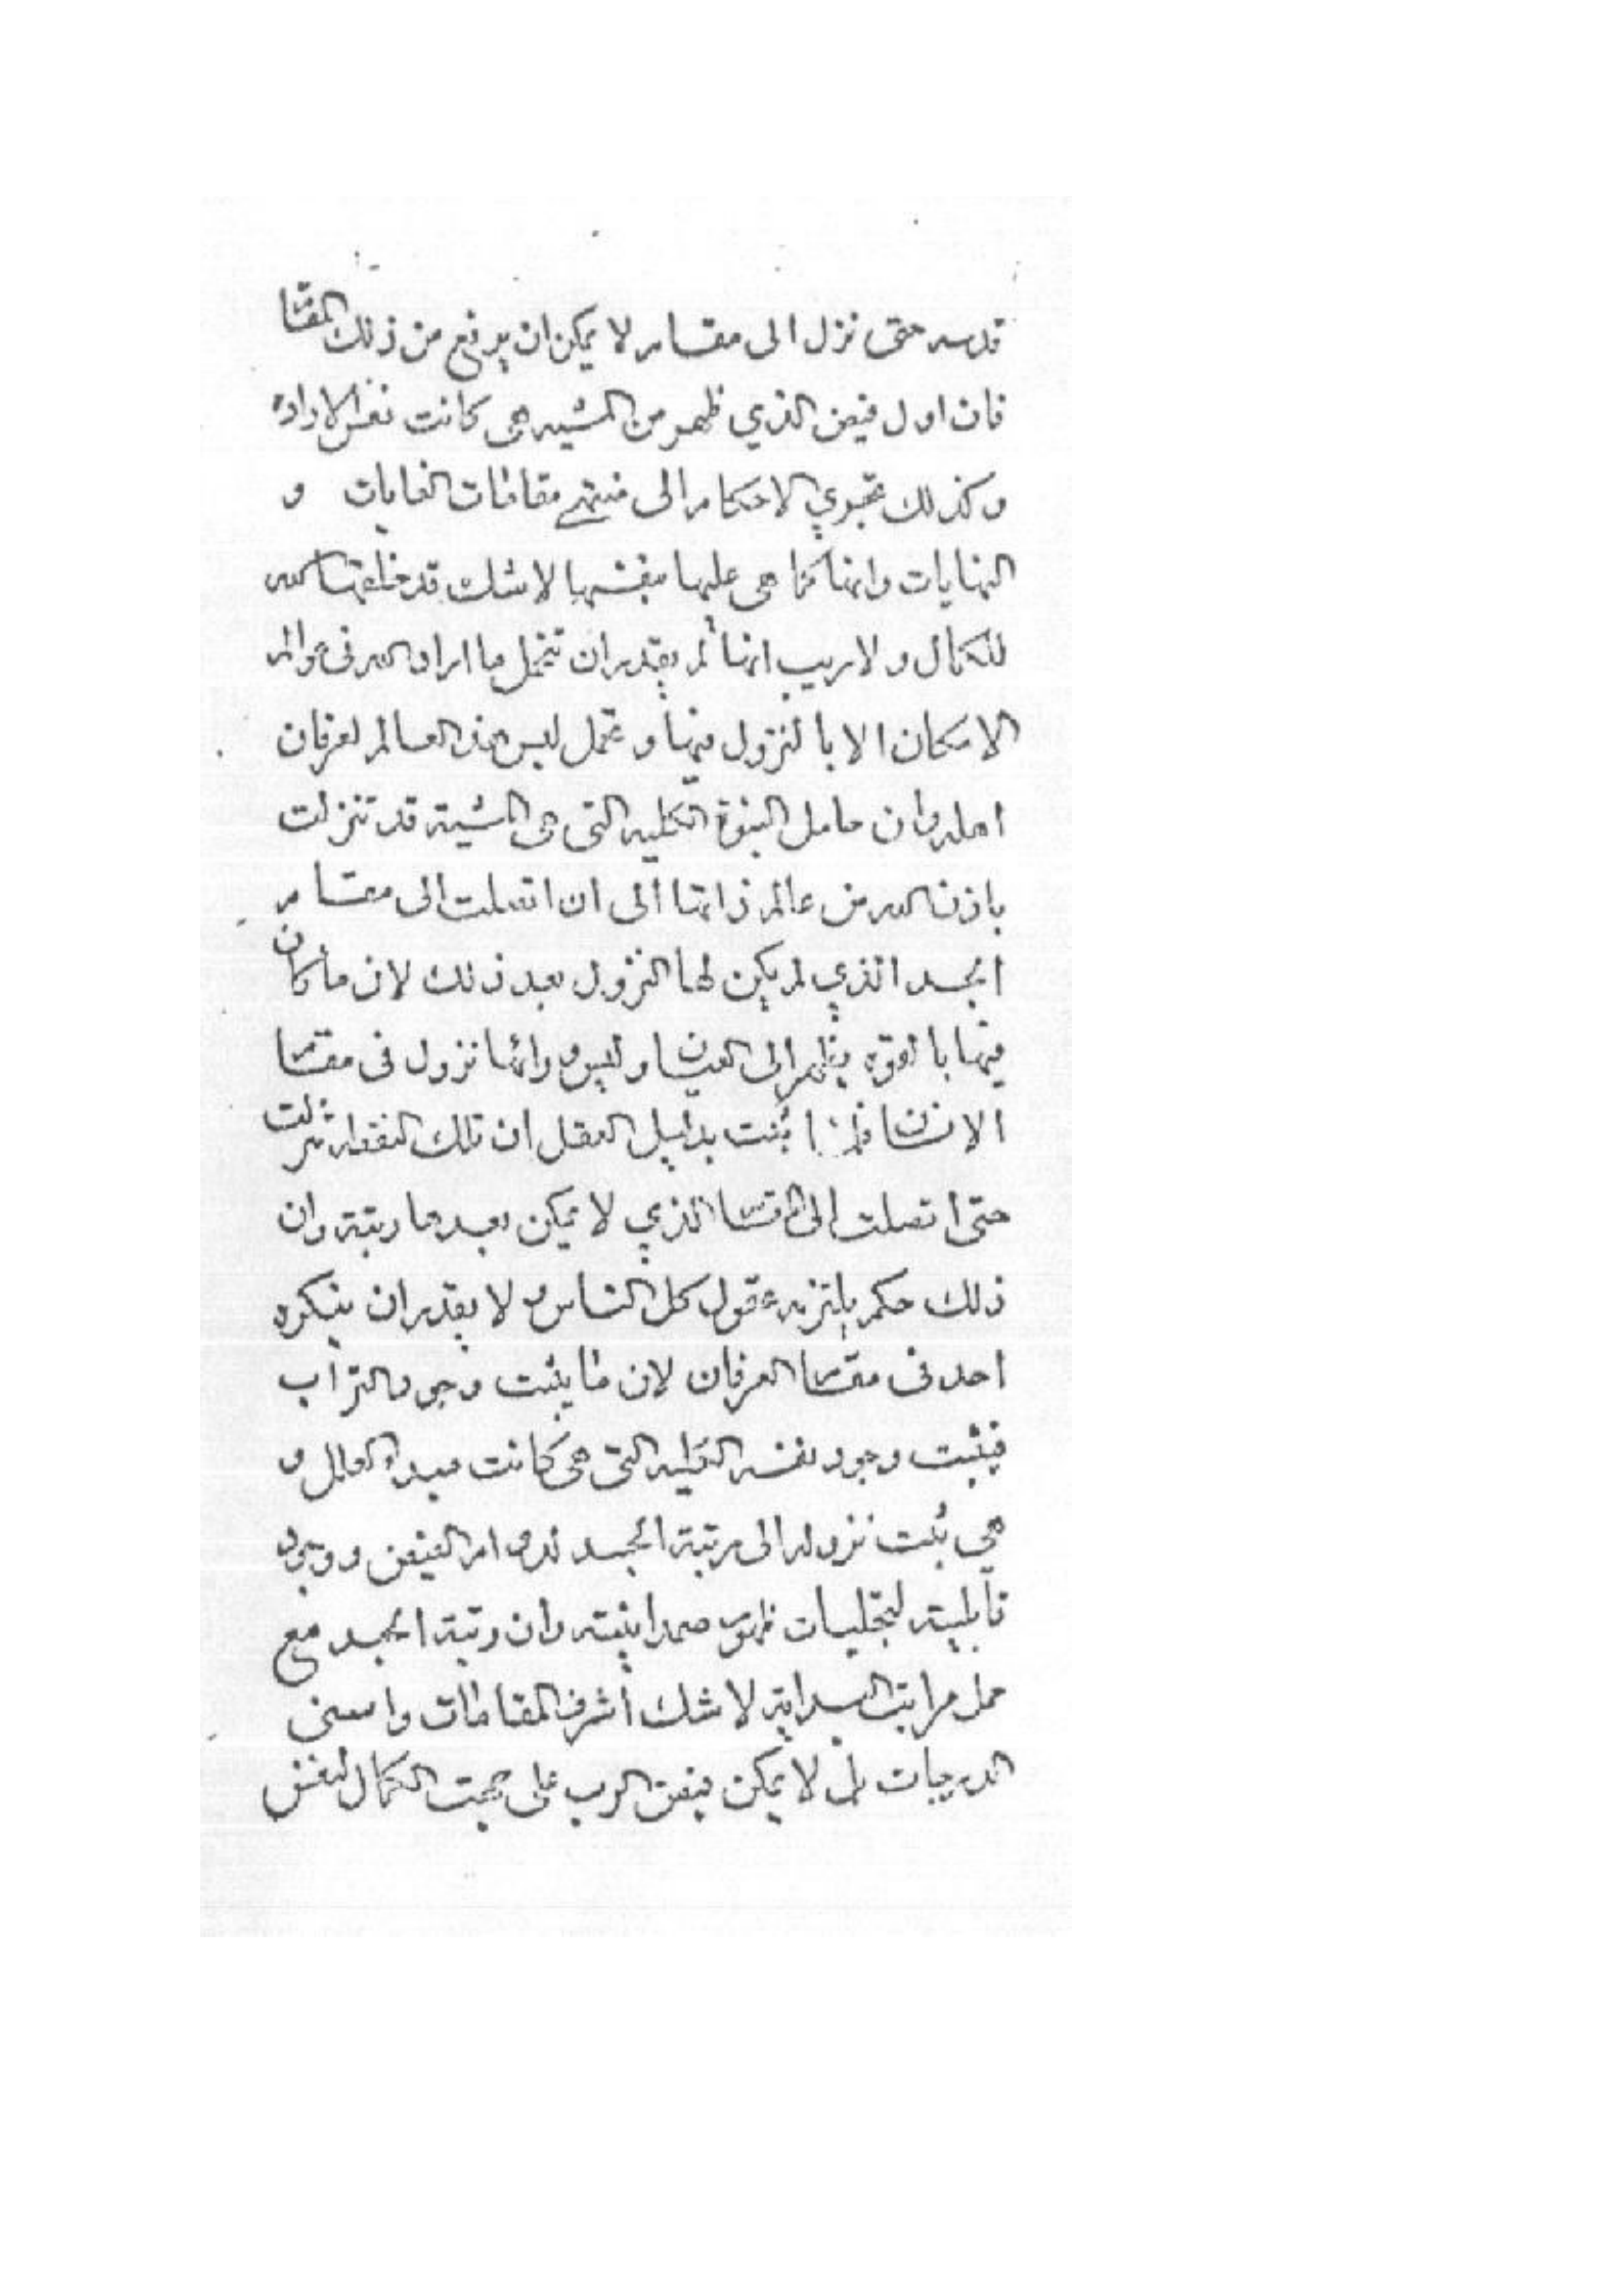 قدسه حتى نزل الى مقام لا يمكن ان يرفع من ذلك المقام
فان اول فيض الذي ظهر من المشيه هى كانت نفس الاراده
و كذلك تجري الاحكام الى منتهى مقامات الغايات و
النهايات وانها كما هى عليها بنفسها لا شك قد خلقها الله
للكمال و لا ريب انها لم يقدر ان تتحمل ما اراد الله فى عوالم
الامكان الا بالنزول فيها و تحمل لبس هذه العالم لعرفان
اهله وان حامل النبوة الكليه التى هى المشية قد تنزلت
باذن الله من عالم ذاتها الى ان اتصلت الى مقام
الجسد الذي لم يكن لها النزول بعد ذلك لان ما كان
فيها بالقوه يظهر الى العيان و ليس ورائها نزول فى مقام
الانسان فلذا ثبت بدليل العقل ان تلك النقطه نزلت
حتى اتصلت الى المقام الذي لا يمكن بعدها رتبة وان
ذلك حكم يلتزمه عقول كل الناس و لا يقدر ان ينكره
احد فى مقام العرفان لان ما يثبت وجود التراب
فيثبت وجود نفسه الكليه التى هى كانت مبدء العالم و
هي ثبت نزوله الى مرتبة الجسد لدوام الفيض و وجود
قابلية لتجليات ظهور صمدانيته وان رتبة الجسد مع
حمل مراتب البداية لا شك اشرف المقامات واسنى
الدرجات بل لا يمكن فيض الرب على جهت الكمال لنفس